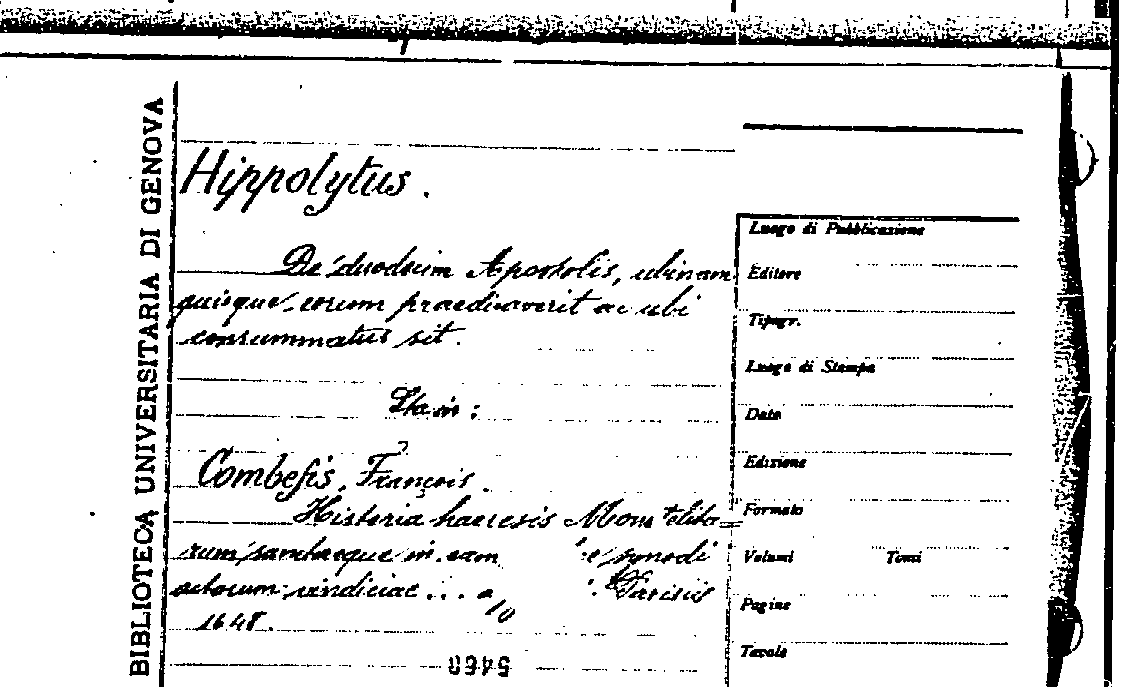 BIBLIOTECA UNIVERSITARIA DI GENOVA
Hippolytus.
De duodecim Apostolis, ubinam
quisque eorum praedicaverit ac ubi
consummatus sit.
Sta in:
Combefis, François.
Historia haeresis
rum sanctaeque in eam synodi
actorum vindiciae ... Parisiis
1648.
5460
Luogo di Pubblicazione
Editore
Tipogr.
Luogo di Stampa
Data
Edizione
Formato
Volumi Tomi
Pagine
Tavole